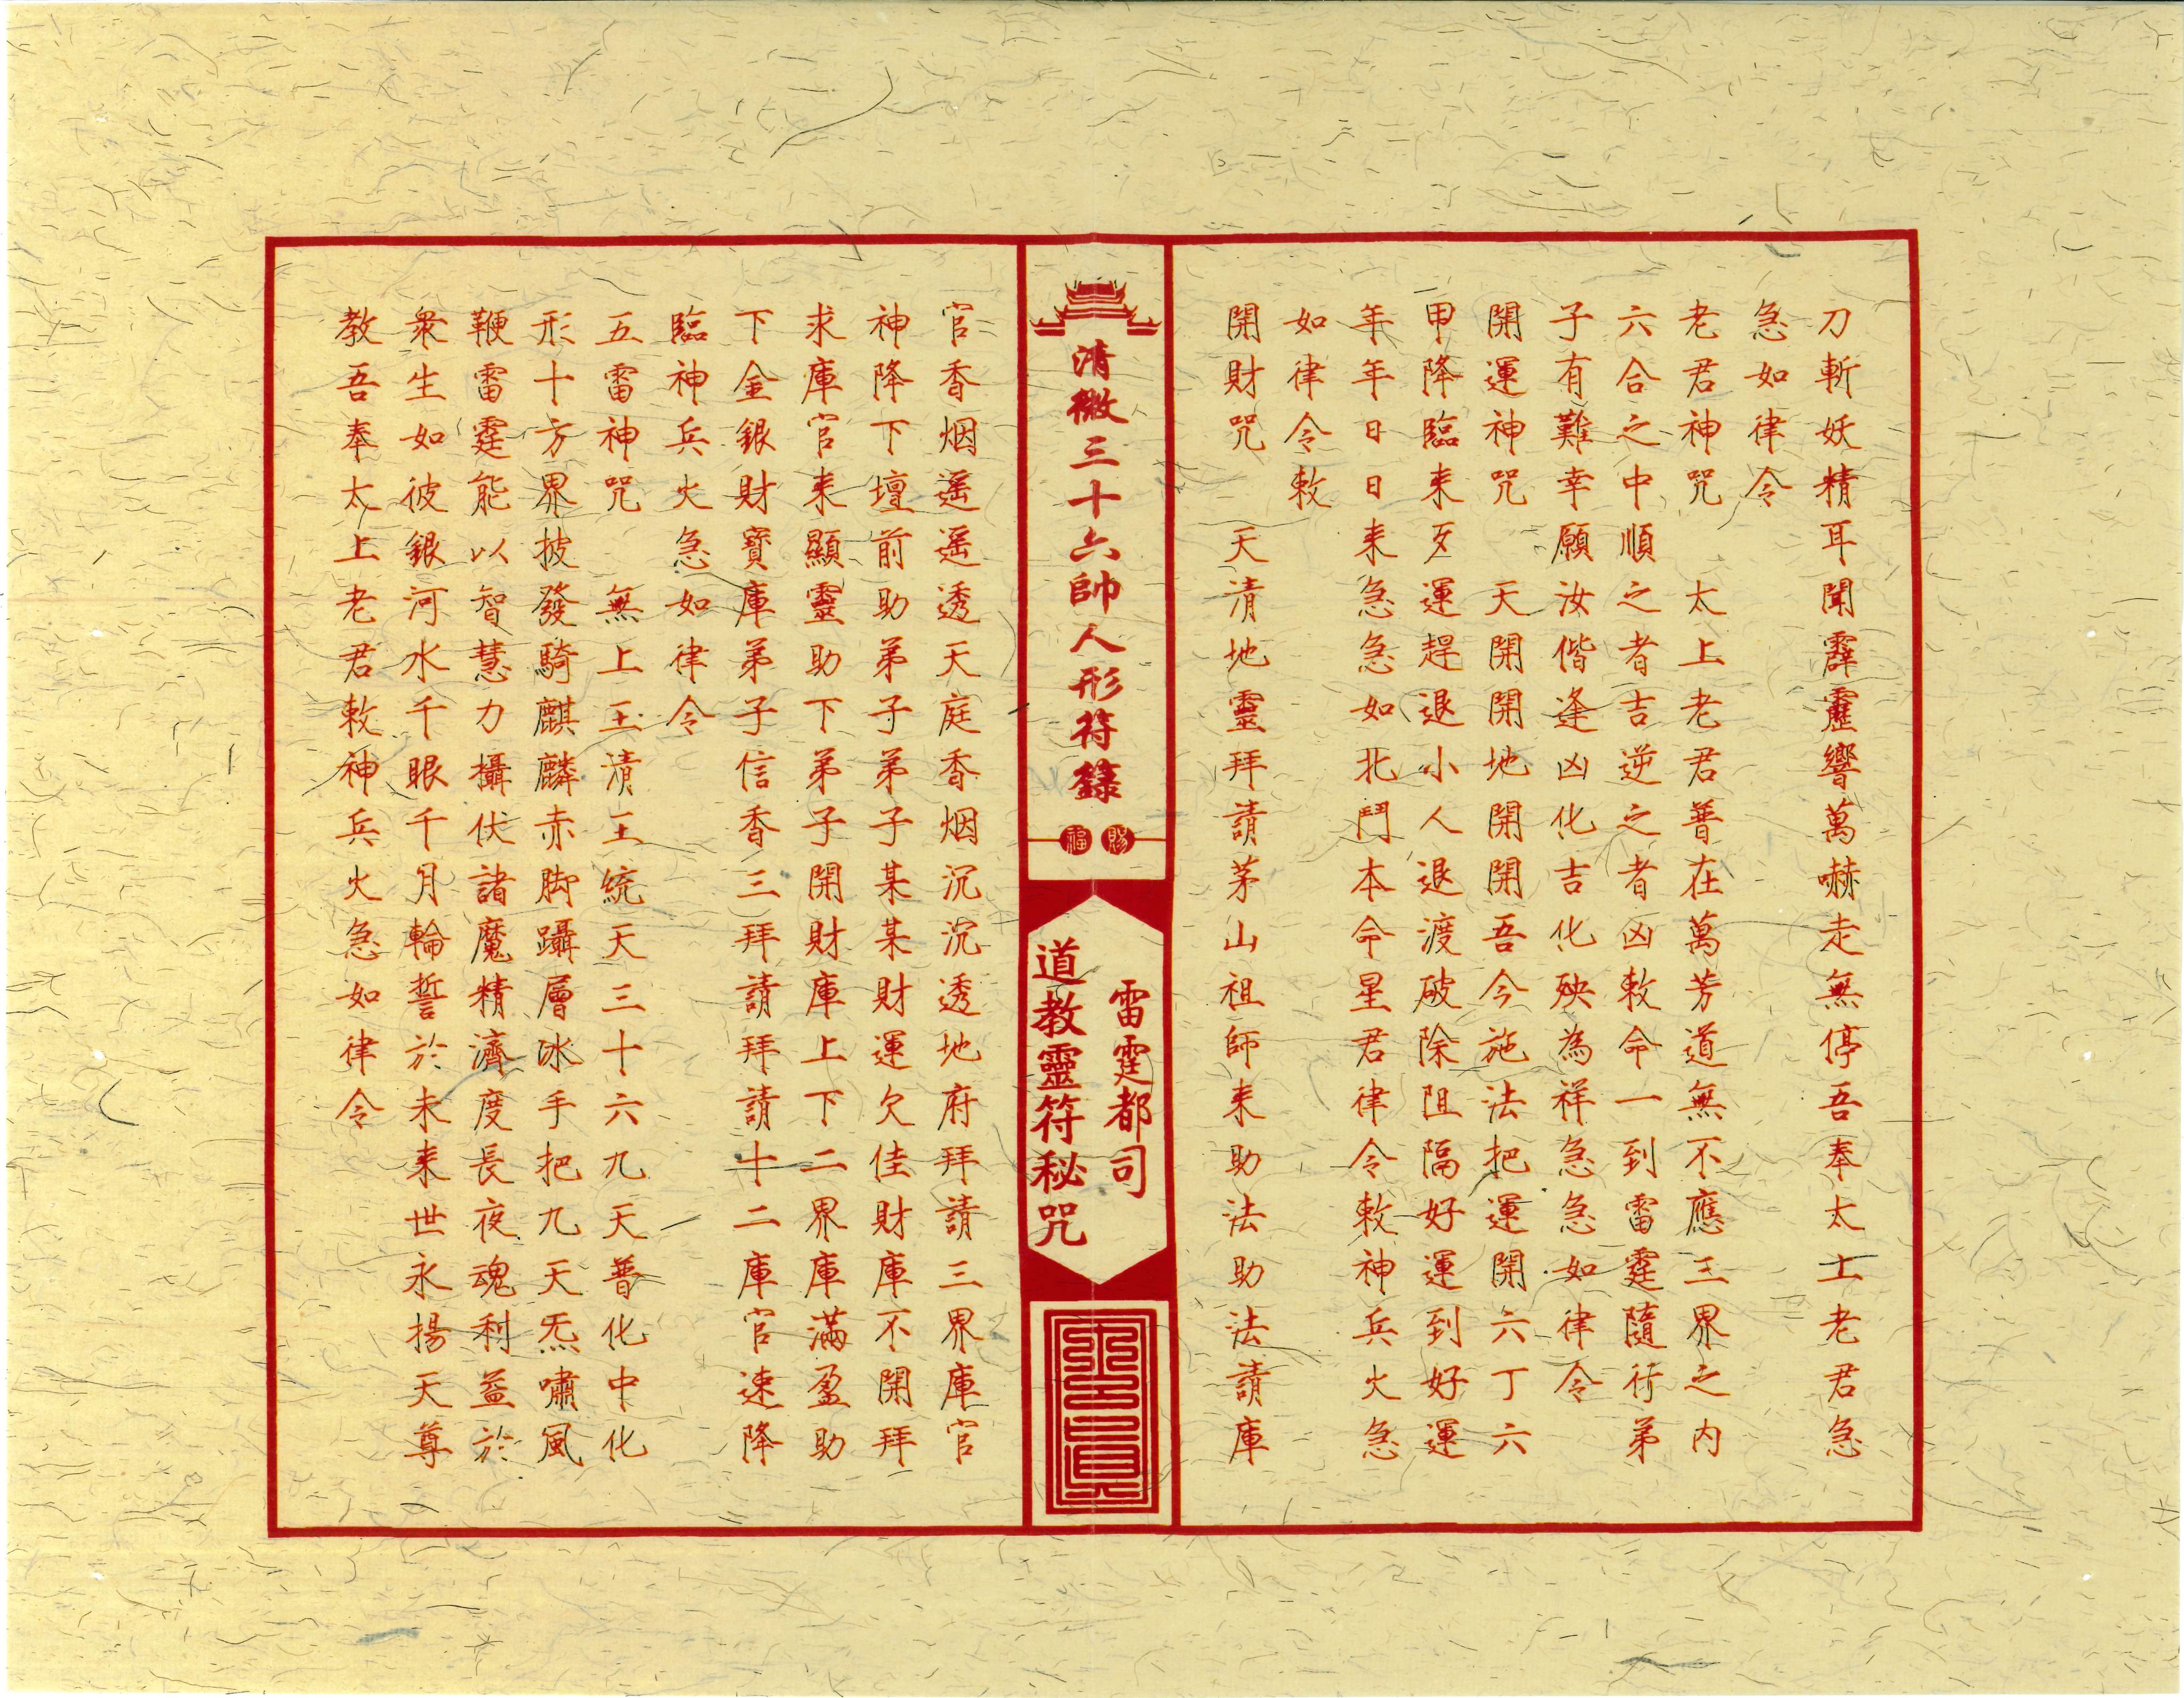 刀斬妖精耳聞霹靂響萬嚇走無停吾奉太上老君急
急如律令
老君神咒　太上老君普在萬芳道無不應三界之內
六合之中順之者吉逆之者凶敕命一到雷霆隨行弟
子有難幸願汝偕逢凶化吉化殃為祥急急如律令
開運神咒　天開開地開開吾今施法把運開六丁六
甲降臨来歹運趕退小人退渡破除阻隔好運到好運
年年日日来急急如北鬥本命星君律令敕神兵火急
如律令敕
開財咒　天清地靈拜請茅山祖師来助法助法請庫
清微三十六帥人形符籙
賜福
雷霆都司
道教靈符秘咒
官香烟遥遥透天庭香烟沉沉透地府拜請三界庫官
神降下壇前助弟子弟子某某財運欠佳財庫不開拜
求庫官来顯靈助下弟子開財庫上下二界庫滿盈助
下金銀財寶庫弟子信香三拜請拜請十二庫官速降
臨神兵火急如律令
五雷神咒　無上王清王統天三十六九天普化中化
形十方界披發騎麒麟赤脚躡層冰手把九天炁嘯風
鞭雷霆能以智慧力攝伏諸魔精濟度長夜魂利益於
衆生如彼銀河水千眼千月輪誓於未来世永揚天尊
教吾奉太上老君敕神兵火急如律令